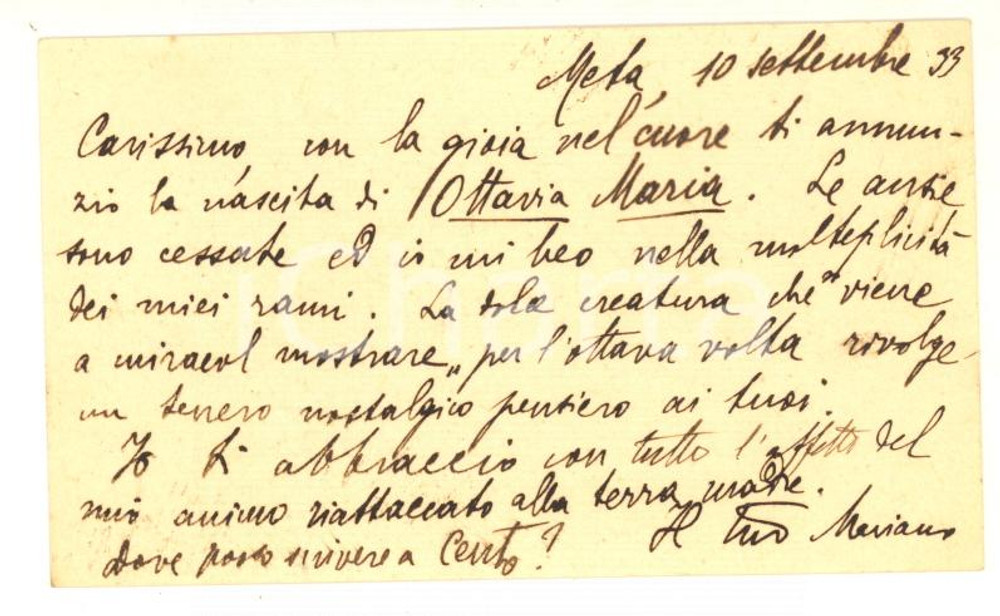 Meta, 10 settembre 33
Carissimo, con la gioia nel cuore ti annun-
zio la nascita di Ottavia Maria. Le ansie
sono cessate ed io mi beo nella molteplicità
dei miei rami. La dolce creatura che "viene
a miracol mostrare" per l'ottava volta rivolge
un tenero nostalgico pensiero ai tuoi.
Io ti abbraccio con tutto l'affetto del
mio animo riattaccato alla terra madre.
Il tuo Mariano
Dove posso scrivere a Cento?